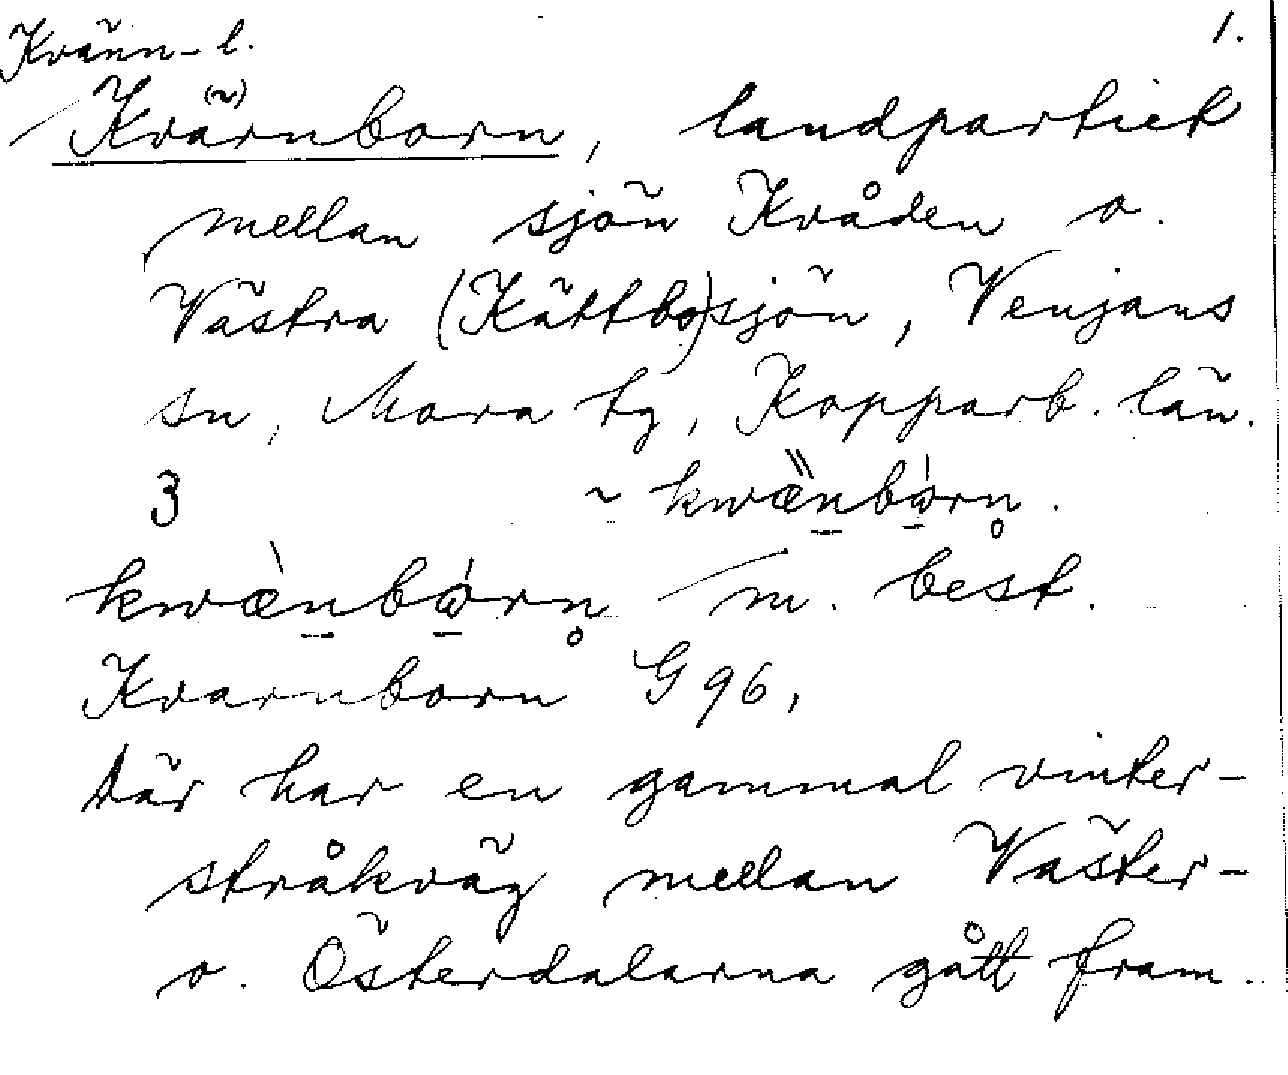 Kvänn-l. 1.
Kvärnborn, landpartiet
mellan sjön Kvåden o.
Västra (Kättbo)sjön, Venjans
sn, Mora tg, Kopparb. län.
3 ~ kwæ̀nbòrn.
kwæ̀nbòrn m. best.
Kvarnborn G96,
Där har en gammal vinter-
stråkväg mellan Väster-
o. Österdalarna gått fram.